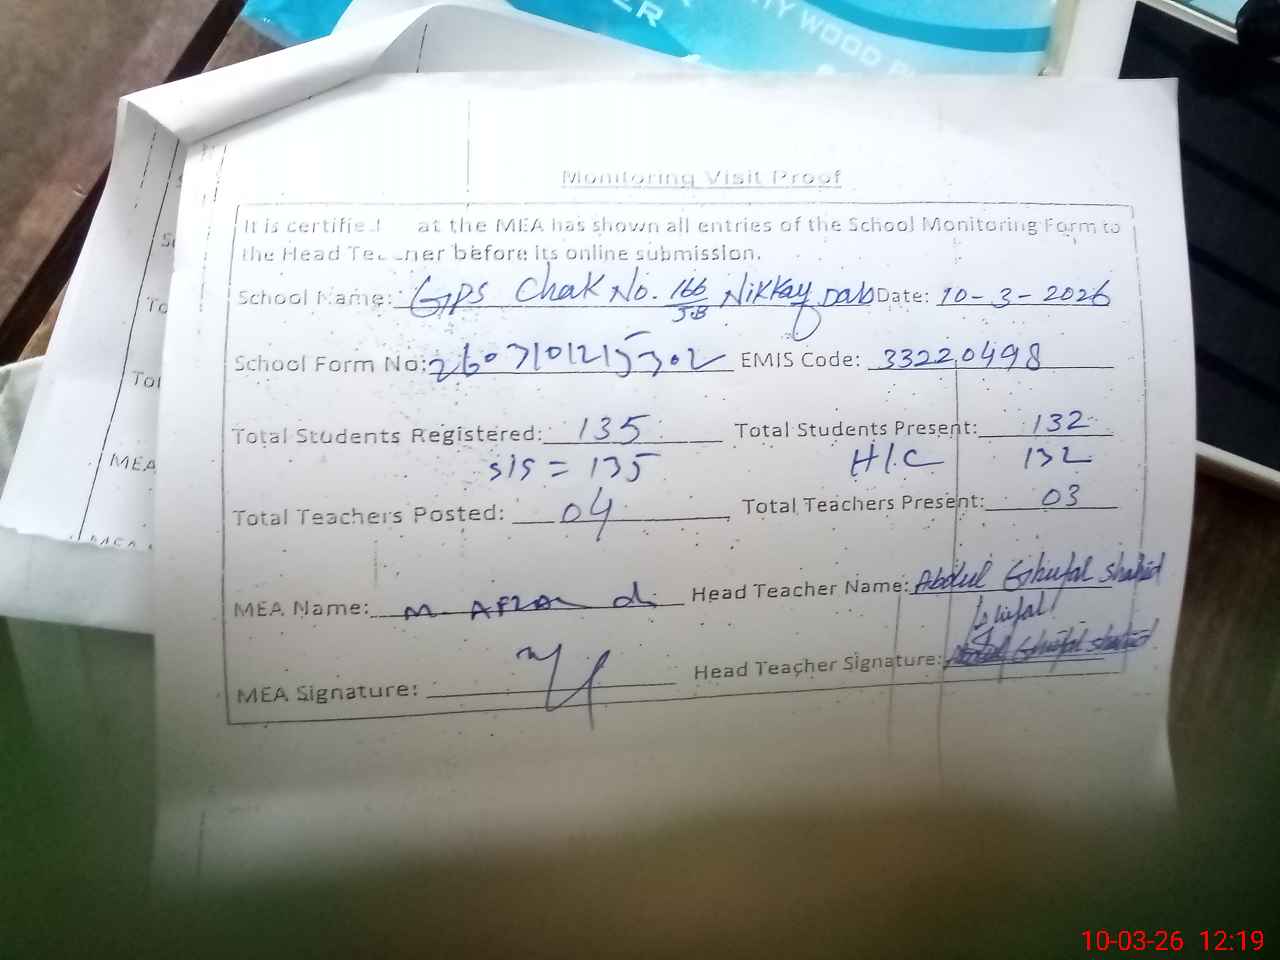 ER
WOOD
Monitoring Visit Proof
It is certified at the MEA has shown all entries of the School Monitoring Form to
the Head Teacher before its online submission.
School Name: GPS Chak No. 166/J.B Nikkay Dab Date: 10-3-2026
School Form No: EMIS Code: 33220498
Total Students Registered: 135 Total Students Present: 132
SIS = 135 H/C 132
Total Teachers Posted: 04 Total Teachers Present: 03
MEA Name: M. AFZAL Head Teacher Name: Abdul Ghufal Shahid
Ghufal
MEA Signature: Head Teacher Signature: Abdul Ghufal Shahid
MEA
10-03-26 12:19